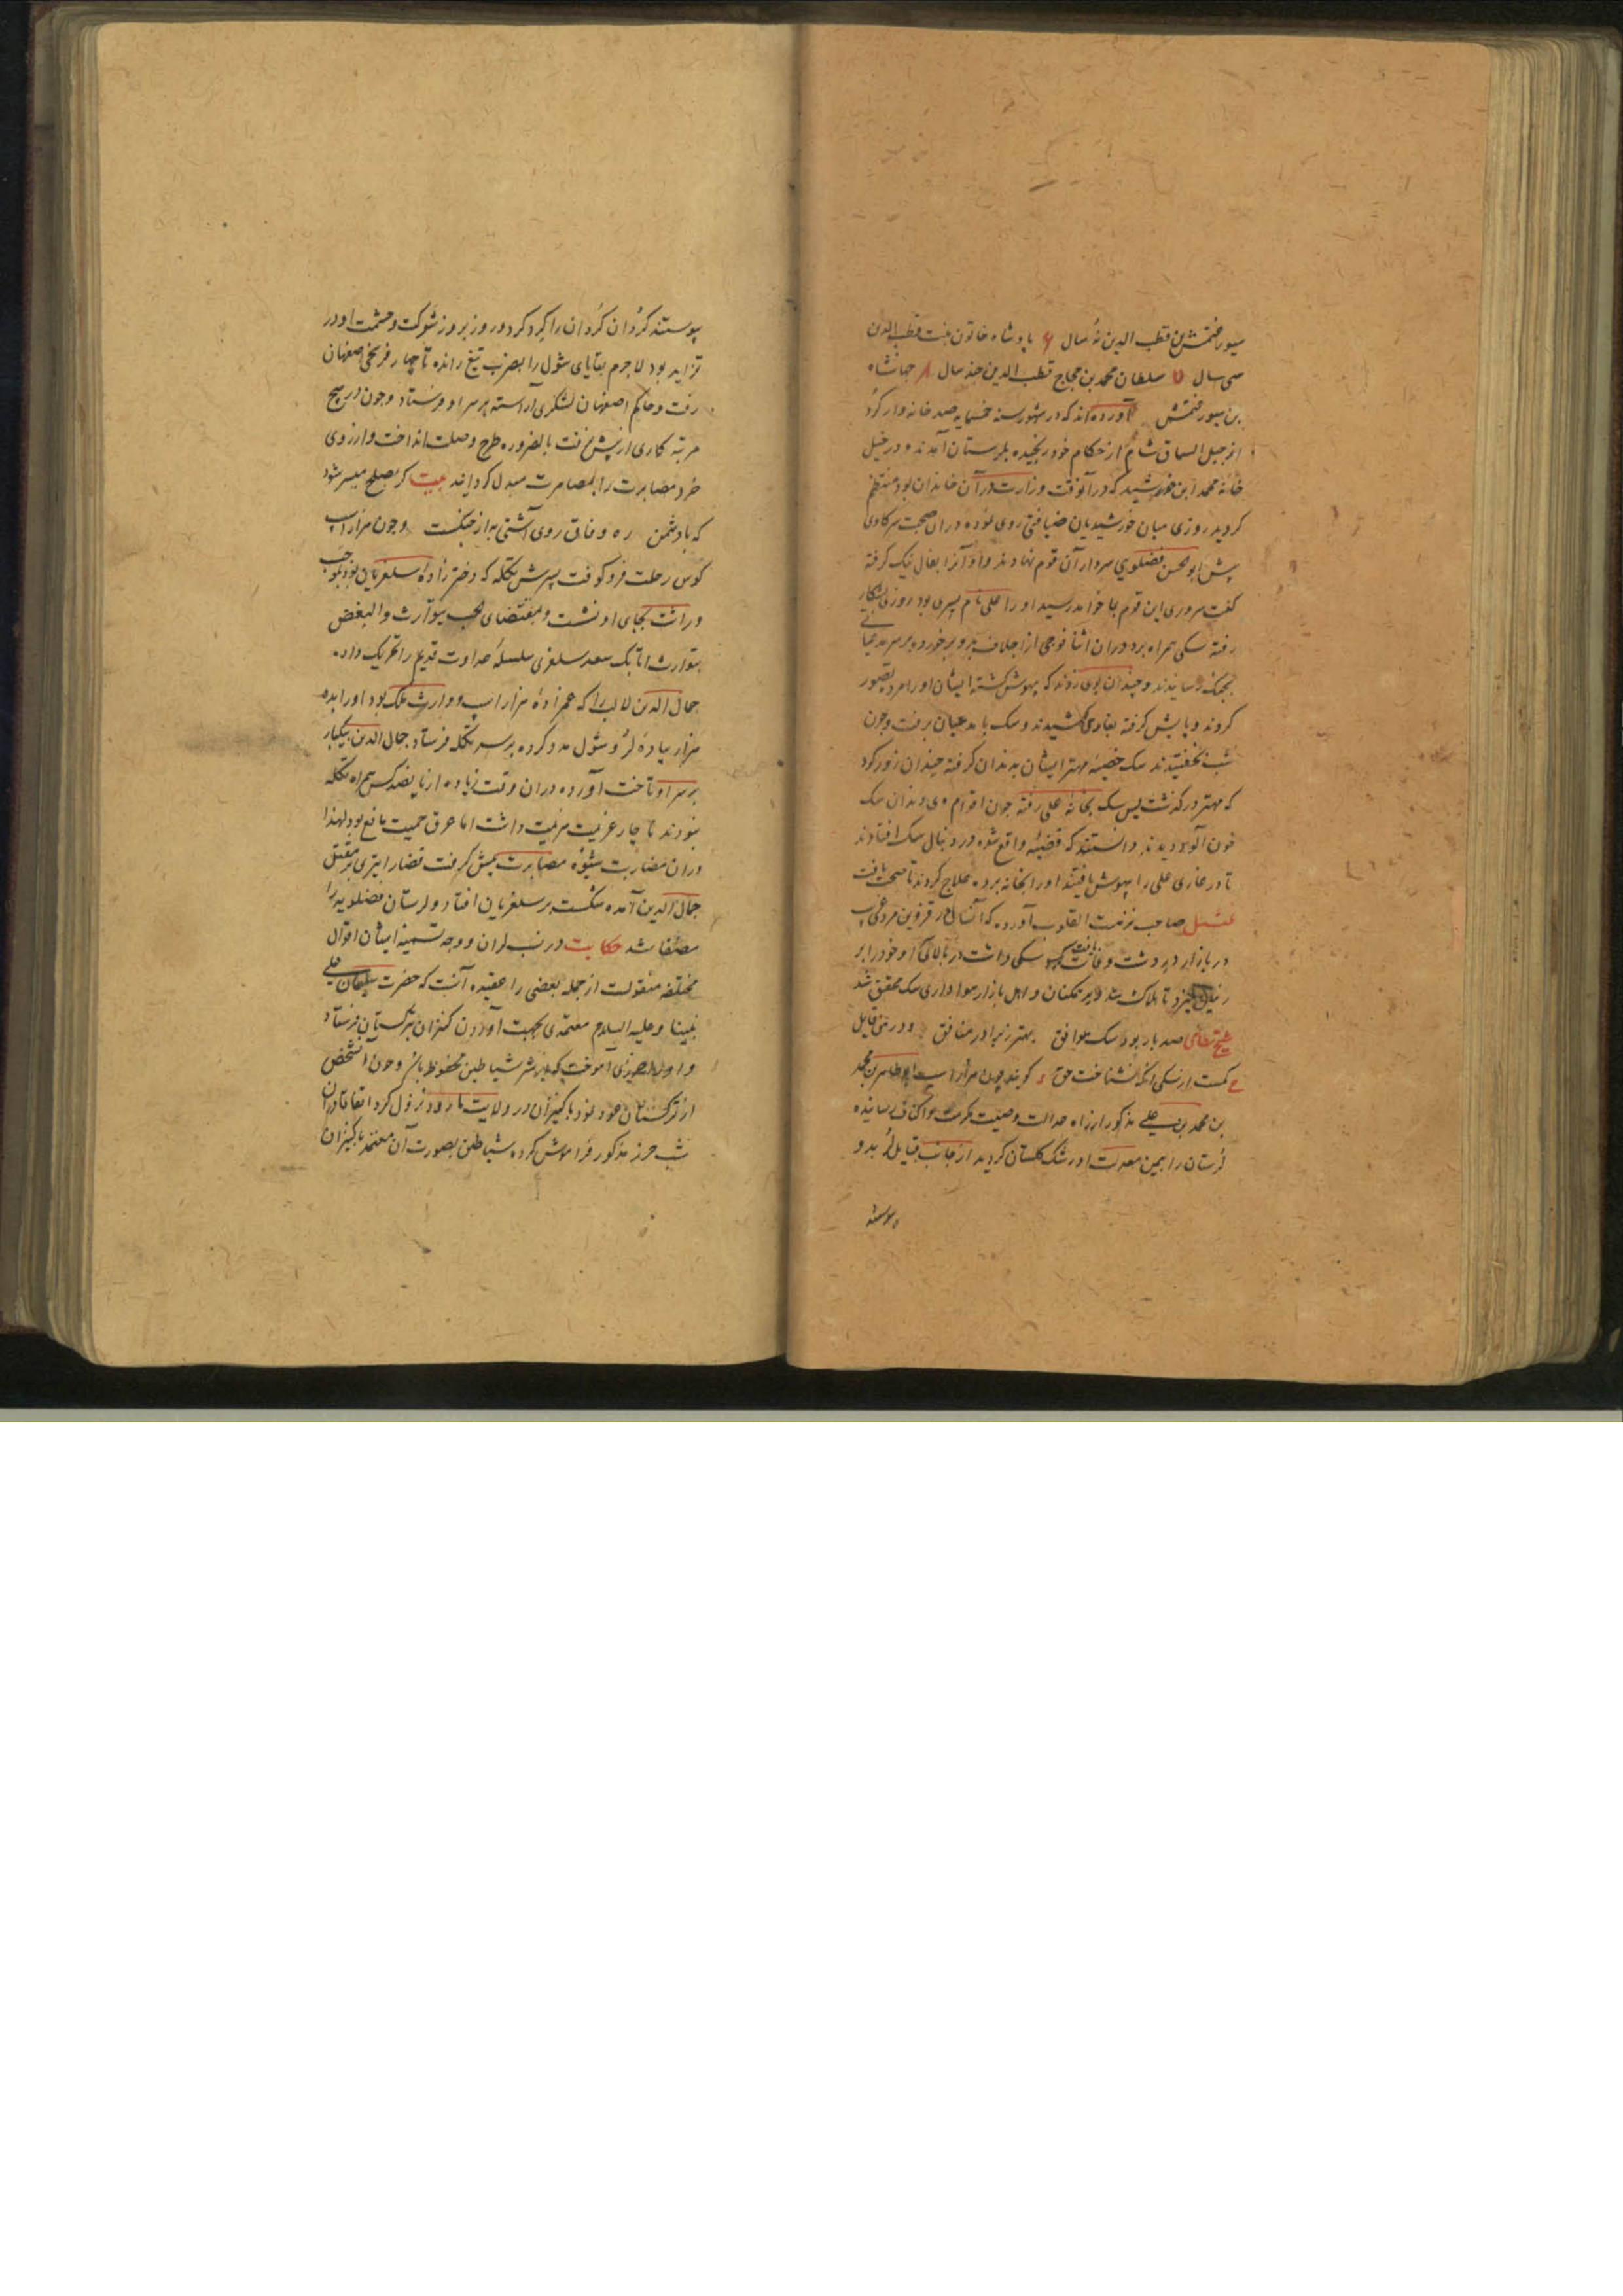 سیورغتمش بن قطب الدین نه سال ۶ پادشاه خاتون بنت قطب الدین
سی سال ۷ سلطان محمد بن حجاج قطب الدین چند سال ۸ جهانشاه
بن سیورغتمش آورده‌اند که در شهور سنه خمسمایه صد خانه وار کرد
از جبل السماق شام از حکام خود رنجیده بلرستان آمدند و در خیل
خانه محمد ابن خورشید که در آنوقت وزارت در آن خاندان بود منتظم
کردید روزی میان خورشیدیان ضیافتی روی نموده دران صحبت سر کاوی
پیش ابو الحسن فضلوی سردار آن قوم نهادند و او آنرا بفال نیک کرفته
کفت سروری این قوم بما خواهد رسید او را علی نام پسری بود روزی بشکار
رفته سکی همراه برد دران اثنا فوجی از اجلاف بدو برخورده
بجنک رسانیدند و چندان بوی زدند که بیهوش کشته ایشان او را مرده تصور
کردند و پایش کرفته بغاری کشیدند و سک با مدعیان برفت و چون
شب بخفتیدند سک خصیه مهتر ایشان بدندان کرفته چندان زور کرد
که مهتر درکذشت پس سک بخانه علی رفته چون اقوام وی دندان سک
خون آلود دیدند دانستند که قضیه واقع شده در دنبال سک افتادند
تا در غاری علی را بیهوش یافتند او را بخانه برده علاج کردند تا صحت یافت
تمثیل صاحب نزهت القلوب آورده که آنسال در قزوین مردی
در بازار در دشت وفات یافت سکی داشت در بالای او خود را بر
زمین میزد تا هلاک شد و بر همکنان و اهل بازار هواداری سک محقق شد
شیخ نظامی صد بار بود سک موافق بهتر ز برادر منافق و در حق قایل
ع کمست از سکی آنکه نشناخت حق ؛ کویند چون هزار اسب ابو طاهر بن محمد
بن محمد بن علی مذکور از راه عدالت وصیت مکرمت باکناف رسانیده
لرستان را بیمن معدلت او رشک کلستان کردید از جانب قبایل لر بدو
پیوستند
پیوستند کردان کردان را کرد کرد و روز بروز شوکت و حشمت او در
تزاید بود لاجرم بقایای شول را بضرب تیغ رانده تا چهار فرسخی اصفهان
رفت و حاکم اصفهان لشکری آراسته بر سر او فرستاد و چون در هیچ
مرتبه کاری از پیش نرفت بالضروره طرح وصلت انداخت و از روی
خرد مصابرت را بمصاهرت مبدل کردانید بیت کر بصلح میسر شود
که با دشمن ره وفاق روی آشتی به از جنکست و چون هزار اسب
کوس رحلت فرو کوفت پسرش تکله که دختر زاده سلغریان بود بموجب
وراثت بجای او نشست و بمقتضای الحب یتوارث والبغض
یتوارث اتابک سعد سلغری سلسله عداوت قدیم را تحریک داده
جمال الدین لالبا را که عمزاده هزار اسب و وارث ملک بود او را بده
هزار پیاده لر و شول مدد کرده بر سر تکله فرستاد جمال الدین بیکبار
بر سر او تاخت آورده دران وقت زیاده از پانصد کس همراه تکله
نبودند ناچار عزیمت هزیمت داشت اما عرق حمیت مانع بود لهذا
دران مضاربت شیوه مصابرت پیش کرفت قضا را تیری بر مقتل
جمال الدین آمده شکست بر سلغریان افتاد و لرستان فضلویه را
مصفا شد حکایت در نسب لران و وجه تسمیه ایشان اقوال
مختلفه منقولست از جمله بعضی را عقیده آنست که حضرت سلیمان علی
نبینا و علیه السلام معتمدی بجهت آوردن کنیزان بترکستان فرستاد
و او را حرزی آموخت که از شر شیاطین محفوظ باشد و چون آن شخص
از ترکستان عود نمود با کنیزان در ولایت مارود نزول کرد اتفاقا در آن
شب حرز مذکور فراموش کرده شیاطین بصورت آن معتمد با کنیزان